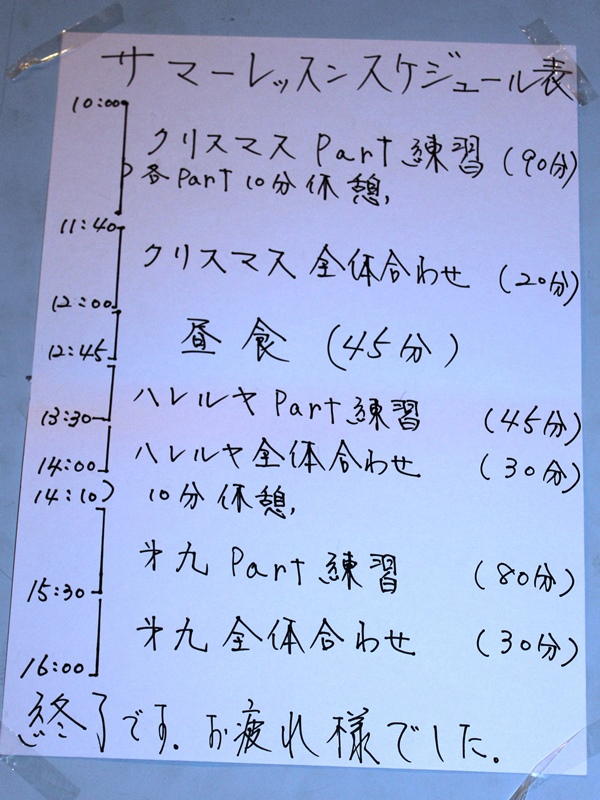 サマーレッスンスケジュール表
10:00
クリスマス Part 練習 (90分)
各Part 10分休憩,
11:40
クリスマス 全体合わせ (20分)
12:00
昼食 (45分)
12:45
ハレルヤ Part 練習 (45分)
13:30
ハレルヤ全体合わせ (30分)
14:00
14:10 10分休憩,
㐧九 Part 練習 (80分)
15:30
㐧九 全体合わせ (30分)
16:00
終了です. お疲れ様でした.